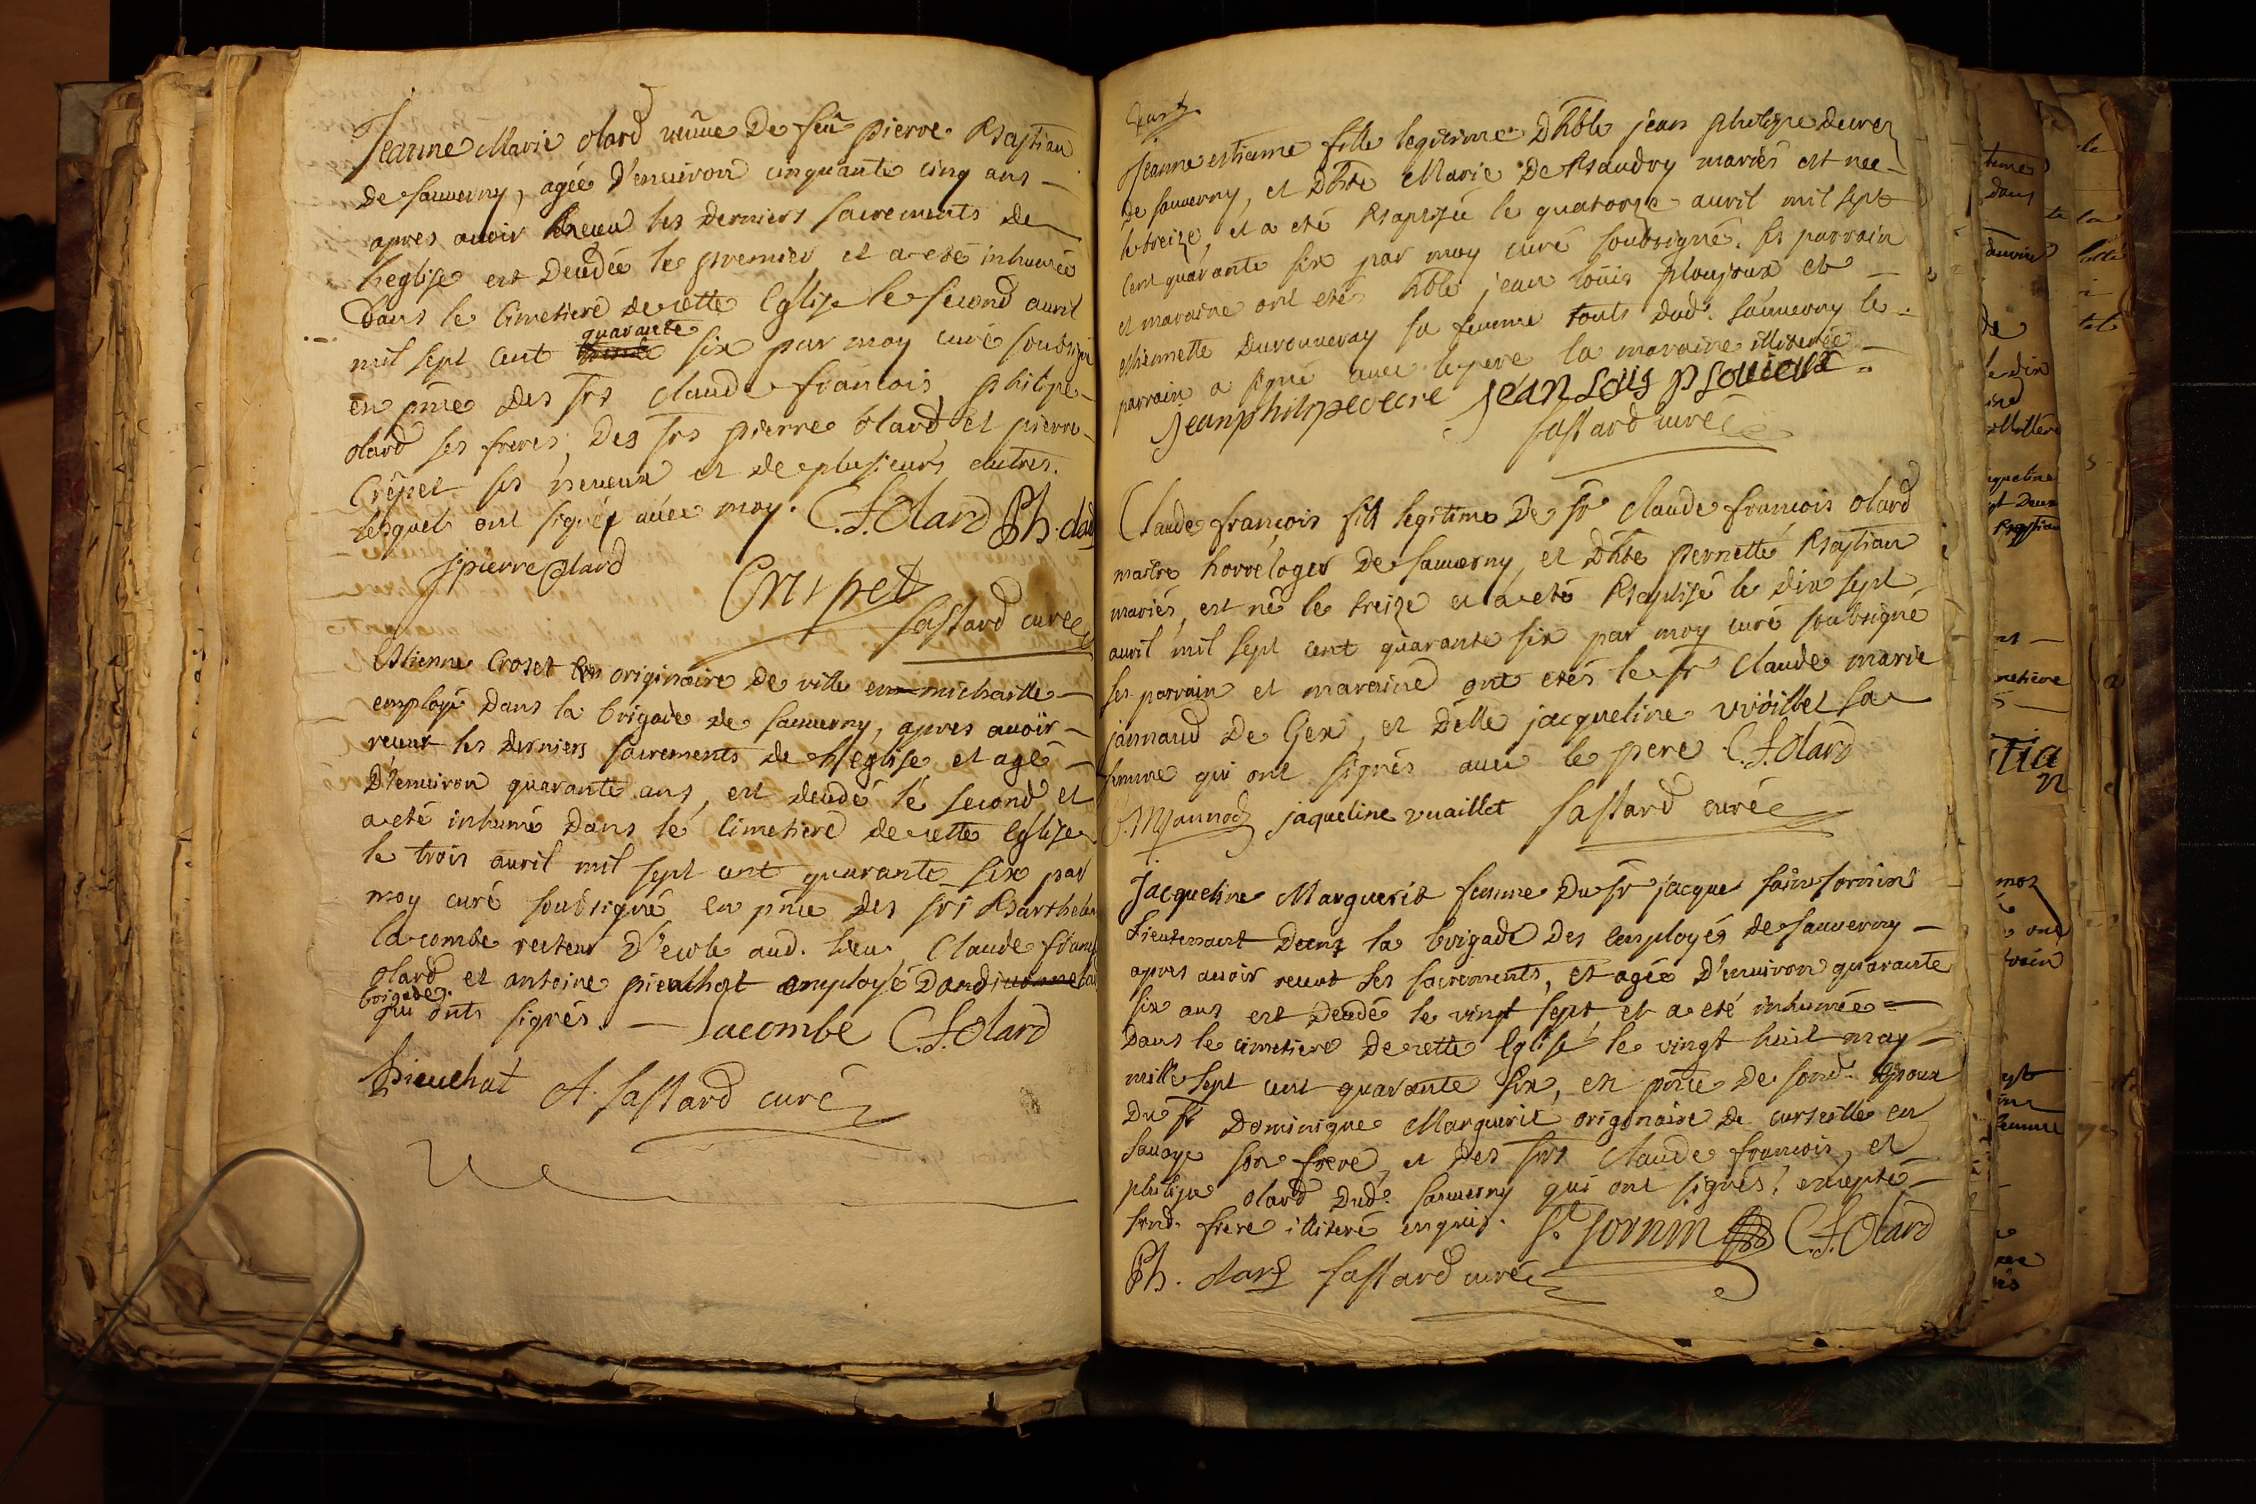 Jeanne Marie olard veuve De feu pierre Bastian
de sauverny, agée D'enuiron cinquante cinq ans
apres auoir les Derniers sacrements de
l'eglise est Decedée le premier et a eté inhumée
Dans le Cimetiere de cette Eglise le second auril
quarante
mil sept cent six par moy curé soubsigné
en pnce Des srs Claude francois philipe
olard ses freres, Des srs pierre olard et pierre
Crêpet ses neveux et de plusieurs autres.
lesquels ont signés avec moy. C.F. Olard Ph. olard
pierre Olard
Crepet
fastard curé
Estienne Croset originaire de ville en michaille
employé Dans la brigade de sauuerny, apres auoir
receut les derniers sacrements de l'eglise et agé
D'enuiron quarante ans, est decedé le second et
a eté inhumé Dans le cimetiere de cette Eglise
le trois auril mil sept cent quarante six par
moy curé soubsigné en pnce des srs Barthelemy
lacombe recteur D'ecole aud. lieu Claude francois
olard et antoine pieuchat employé Dans
brigade.
qui onts signés. Lacombe C.F. Olard
pieuchat A. fastard curé
Jeanne estienne fille legitime D'hble jean philipe decre
de sauuerny, et Dhble Marie De Baudry mariés est nee
le treize, et a eté Baptisée le quatorze auril mil sept
cent quarante six par moy curé soubsigné. ses parrain
et maraine ont etés hble jean louis ploujoux et
estiennette Durouueray sa femme touts dud. sauuerny le
parrain a signé auec le pere la maraine illiterée
Jean philipe decre Jean Louis ploujoux
fastard curé
Claude francois fils legitime De sr Claude francois olard
maitre horreloger De sauuerny, et Dhble pernette Bastian
mariés, est né le treize et a eté Baptisé le dix sept
auril mil sept cent quarante six par moy curé soubsigné
ses parrain et maraine ont etés le sr Claude marie
jannaud De Gex, et Delle jacqueline vuoillet sa
femme qui ont signés auec le pere C.F. Olard
jaqueline vuaillet fastard curé
Jacqueline Marguerit femme Du sr jacque saint sornin
Lieutenant Dans la brigade Des employés de sauverny
apres auoir receut ses sacrements, et agée D'enuiron quarante
six ans est decedé le vingt sept et a eté inhumée
Dans le cimetiere de cette Eglise le vingt huit may
mille sept cent quarante six, en pnce De sond. epoux
Du sr Dominique Marguerit originaire de curseille en
sauoye son frere, et Des srs Claude francois, et
philipe olard Dud. sauuerny qui ont signés, excepté
sond. frere illiteré enquis. St. Sornin C.F. Olard
Ph. olard fastard curé